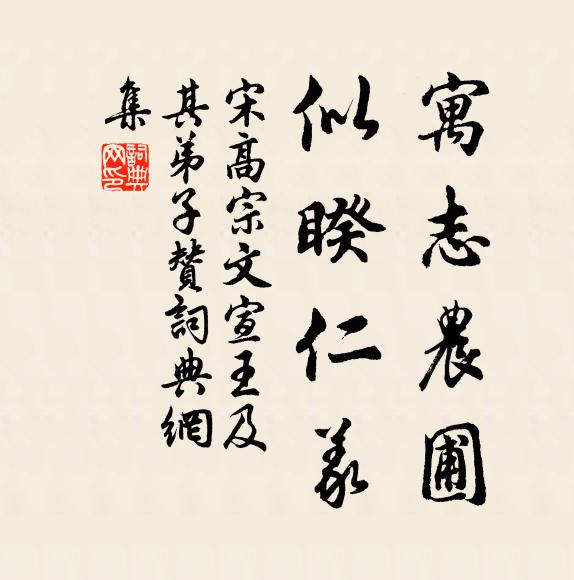 寓志農圃
似睽仁義
宋高宗文宣王及
其弟子贊詞典網
集
詞典網印